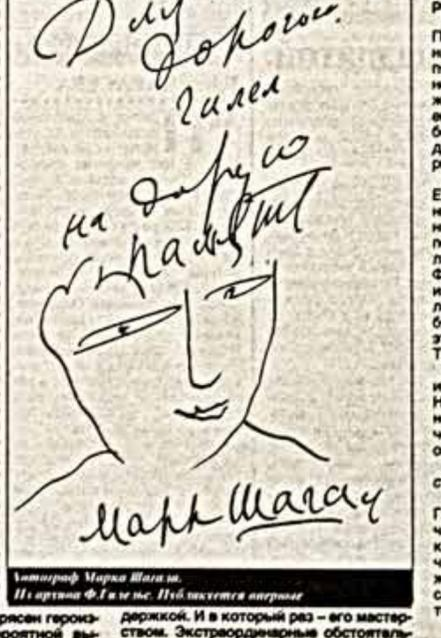 Для
дорогой
гилел
на добрую
память
Марк Шагал
Автограф Марка Шагала.
Из архива Ф.Гилельс. Публикуется впервые
держкой. И в который раз – его мастер-
ством. Экстраординарные обстоятель-